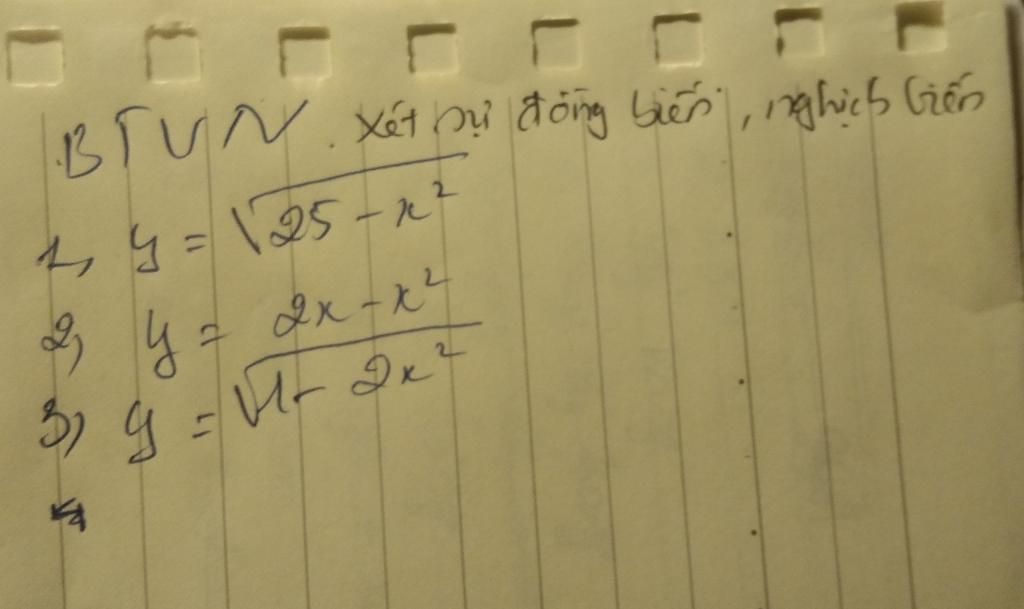 BTVN. Xét sự đồng biến, nghịch biến
1, y = √25 - x²
2, y = 2x - x²
3, y = √1 - 2x²